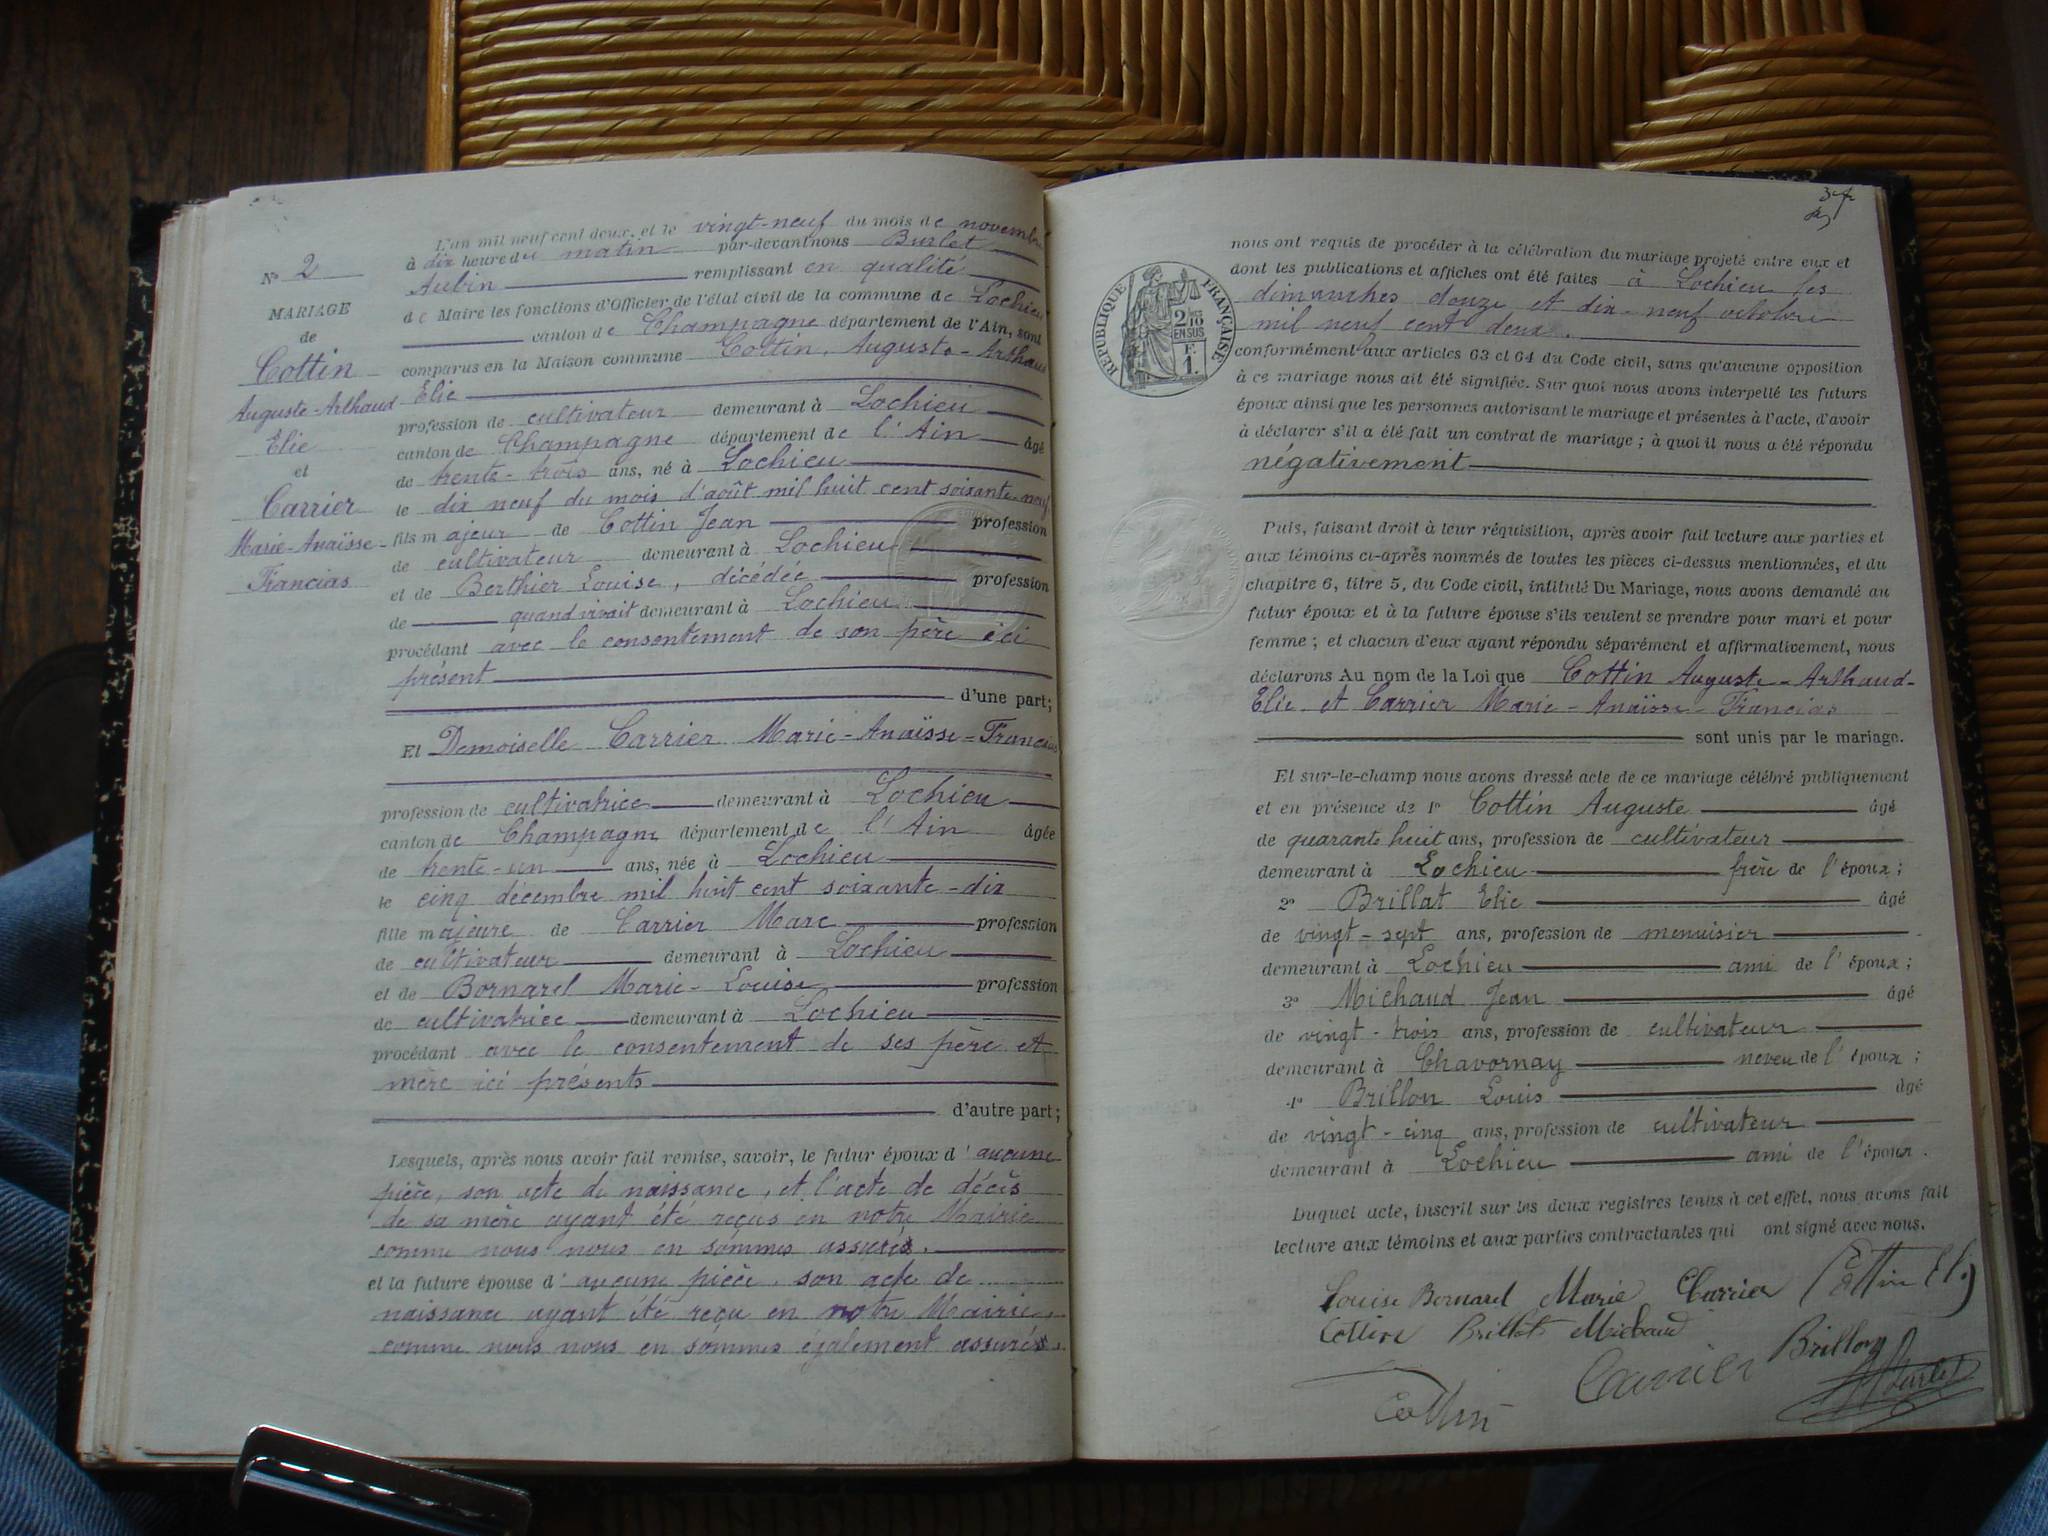 N° 2
MARIAGE
de
Cottin
Auguste-Arthaud
Elie
et
Carrier
Marie-Anaïsse-
Francias
L'an mil neuf cent deux, et le vingt-neuf du mois de novembre
à dix heure du matin par-devant nous Burlet
Aubin remplissant en qualité
de Maire les fonctions d'Officier de l'état civil de la commune de Lochieu
canton de Champagne département de l'Ain, sont
comparus en la Maison commune Cottin, Auguste-Arthaud
Elie
profession de cultivateur demeurant à Lochieu
canton de Champagne département de l'Ain âgé
de trente-trois ans, né à Lochieu
le dix neuf du mois d'août mil huit cent soixante-neuf
fils majeur de Cottin Jean profession
de cultivateur demeurant à Lochieu
et de Berthier Louise, décédée profession
de quand vivait demeurant à Lochieu
procédant avec le consentement de son père ici
présent
d'une part;
Et Demoiselle Carrier Marie-Anaïsse-Francias
profession de cultivatrice demeurant à Lochieu
canton de Champagne département de l'Ain âgée
de trente-un ans, née à Lochieu
le cinq décembre mil huit cent soixante-dix
fille majeure de Carrier Marc profession
de cultivateur demeurant à Lochieu
et de Bornarel Marie-Louise profession
de cultivatrice demeurant à Lochieu
procédant avec le consentement de ses père et
mère ici présents
d'autre part;
Lesquels, après nous avoir fait remise, savoir, le futur époux d'aucune
pièce, son acte de naissance, et l'acte de décès
de sa mère ayant été reçus en notre Mairie
comme nous nous en sommes assurés.
et la future épouse d'aucune pièce, son acte de
naissance ayant été reçu en notre Mairie,
comme nous nous en sommes également assurés.
RÉPUBLIQUE FRANÇAISE
2 10
EN SUS
F.
1.
nous ont requis de procéder à la célébration du mariage projeté entre eux et
dont les publications et affiches ont été faites à Lochieu les
dimanches douze et dix-neuf octobre
mil neuf cent deux.
conformément aux articles 63 et 64 du Code civil, sans qu'aucune opposition
à ce mariage nous ait été signifiée. Sur quoi nous avons interpellé les futurs
époux ainsi que les personnes autorisant le mariage et présentes à l'acte, d'avoir
à déclarer s'il a été fait un contrat de mariage; à quoi il nous a été répondu
négativement
Puis, faisant droit à leur réquisition, après avoir fait lecture aux parties et
aux témoins ci-après nommés de toutes les pièces ci-dessus mentionnées, et du
chapitre 6, titre 5, du Code civil, intitulé Du Mariage, nous avons demandé au
futur époux et à la future épouse s'ils veulent se prendre pour mari et pour
femme; et chacun d'eux ayant répondu séparément et affirmativement, nous
déclarons Au nom de la Loi que Cottin Auguste-Arthaud-
Elie et Carrier Marie-Anaïsse-Francias
sont unis par le mariage.
Et sur-le-champ nous avons dressé acte de ce mariage célébré publiquement
et en présence de 1° Cottin Auguste âgé
de quarante huit ans, profession de cultivateur
demeurant à Lochieu frère de l'époux;
2° Brillat Elie âgé
de vingt-sept ans, profession de menuisier
demeurant à Lochieu ami de l'époux;
3° Michaud Jean âgé
de vingt-trois ans, profession de cultivateur
demeurant à Chavornay neveu de l'époux;
4° Brillon Louis âgé
de vingt-cinq ans, profession de cultivateur
demeurant à Lochieu ami de l'époux.
Duquel acte, inscrit sur les deux registres tenus à cet effet, nous avons fait
lecture aux témoins et aux parties contractantes qui ont signé avec nous.
Louise Bornarel Marie Carrier Cottin El.
Cottin Brillat Michaud
Brillon
Cottin Carrier Burlet